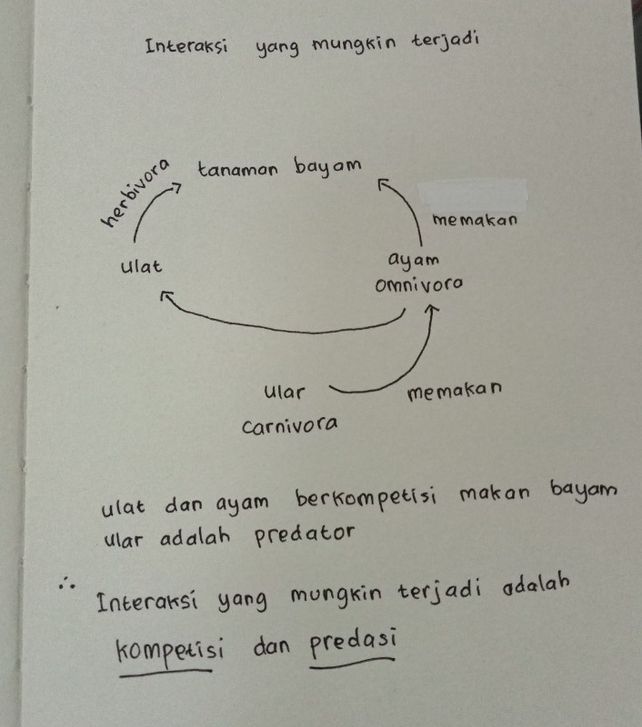 Interaksi yang mungkin terjadi
herbivora
tanaman bayam
memakan
ulat
ayam
omnivora
ular
memakan
carnivora
ulat dan ayam berkompetisi makan bayam
ular adalah predator
∴ Interaksi yang mungkin terjadi adalah
kompetisi dan predasi